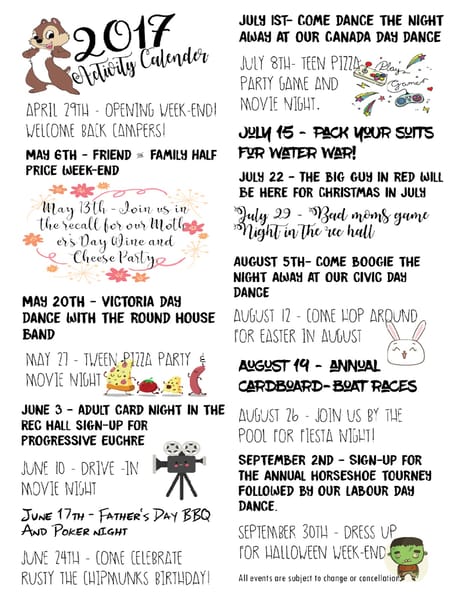 2017
Activity Calender
APRIL 29TH - OPENING WEEK-END!
WELCOME BACK CAMPERS!
MAY 6TH - FRIEND & FAMILY HALF
PRICE WEEK-END
May 13th - Join us in
the recall for our Moth
er's Day Wine and
Cheese Party
MAY 20TH - VICTORIA DAY
DANCE WITH THE ROUND HOUSE
BAND
MAY 27 - TWEEN PIZZA PARTY &
MOVIE NIGHT
JUNE 3 - ADULT CARD NIGHT IN THE
REC HALL SIGN-UP FOR
PROGRESSIVE EUCHRE
JUNE 10 - DRIVE -IN
MOVIE NIGHT
JUNE 17TH - FATHER'S DAY BBQ
AND POKER NIGHT
JUNE 24TH - COME CELEBRATE
RUSTY THE CHIPMUNKS BIRTHDAY!
JULY 1ST- COME DANCE THE NIGHT
AWAY AT OUR CANADA DAY DANCE
JULY 8TH- TEEN PIZZA
PARTY GAME AND
MOVIE NIGHT.
Play
Gamer
JULY 15 - PACK YOUR SUITS
FUR WATER WAR!
JULY 22 - THE BIG GUY IN RED WILL
BE HERE FOR CHRISTMAS IN JULY
July 29 - Bad moms game
Night in the rec hall
AUGUST 5TH- COME BOOGIE THE
NIGHT AWAY AT OUR CIVIC DAY
DANCE
AUGUST 12 - COME HOP AROUND
FOR EASTER IN AUGUST
AUGUST 19 - ANNUAL
CARDBOARD-BOAT RACES
AUGUST 26 - JOIN US BY THE
POOL FOR FIESTA NIGHT!
SEPTEMBER 2ND - SIGN-UP FOR
THE ANNUAL HORSESHOE TOURNEY
FOLLOWED BY OUR LABOUR DAY
DANCE.
SEPTEMBER 30TH - DRESS UP
FOR HALLOWEEN WEEK-END
All events are subject to change or cancellation